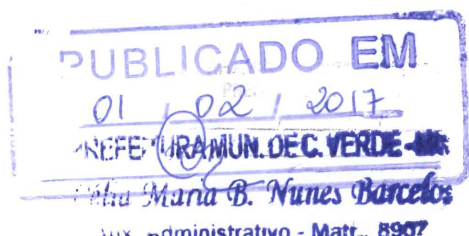 PUBLICADO EM
01 / 02 / 2017
PREFEITURA MUN. DE C. VERDE - MG
Célia Maria B. Nunes Barcelos
Aux. Administrativo - Matr.. 8907